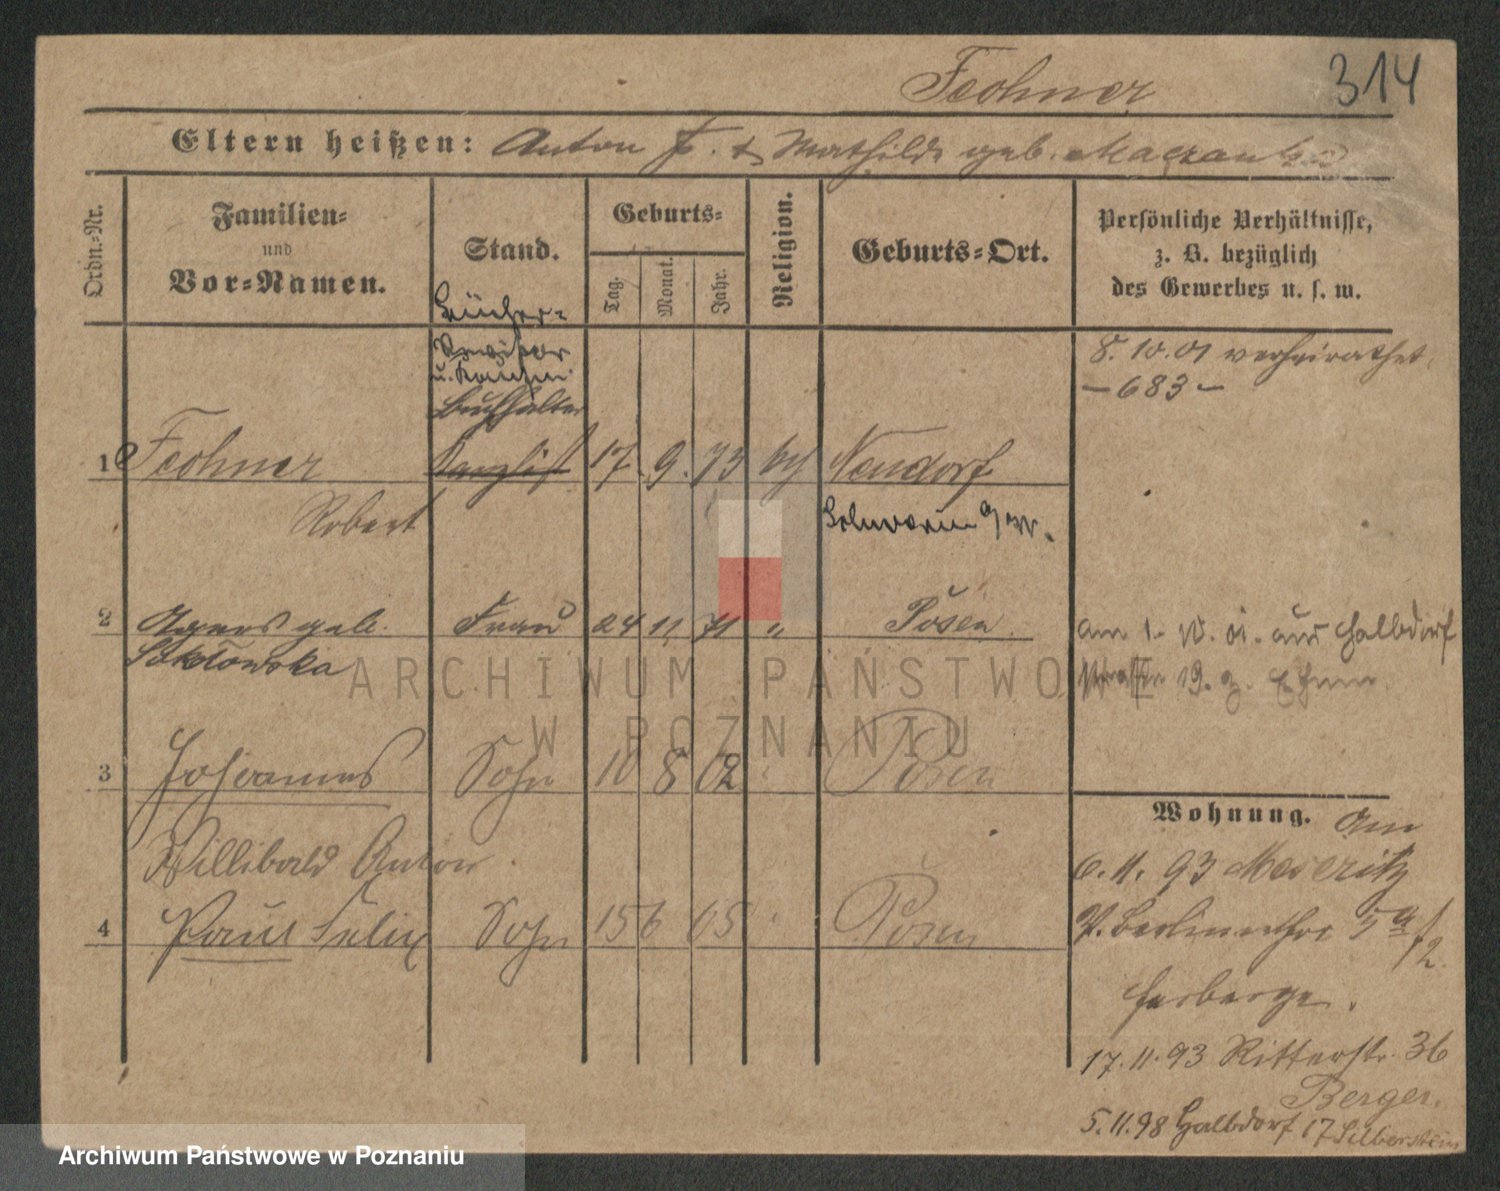 Fechner
314
Eltern heißen: Anton F. & Mathilde geb.
Ordn.-Nr.
Familien-
und
Vor-Namen.
Stand.
Geburts-
Tag.
Monat.
Jahr.
Religion.
Geburts-Ort.
Persönliche Verhältnisse,
z. B. bezüglich
des Gewerbes u. s. w.
Bücher-
Revisor
u. Kaufm.
Buchhalter
8. 10. 01 verheirathet
- 683 -
1 Fechner Kanzlist 17. 9. 73 kth Neudorf
Robert
Schwerin a/W.
2 Agnes geb. Frau 24 11 71 " Posen
Sokolowska
am 1. 10. 01. aus Halbdorf
straße 19. z.
3 Johannes Sohn 10 8 02 " Posen
Willibald Anton
4 Paul Felix Sohn 15 6 05 " Posen
Wohnung. Am
6. 11. 93 Meseritz
Berlinerthor 5a/2
Herberge.
17. 11. 93 Ritterstr. 36
Berger.
5. 11. 98 Halbdorf 17 Silberstein
ARCHIWUM PAŃSTWOWE
W POZNANIU
Archiwum Państwowe w Poznaniu